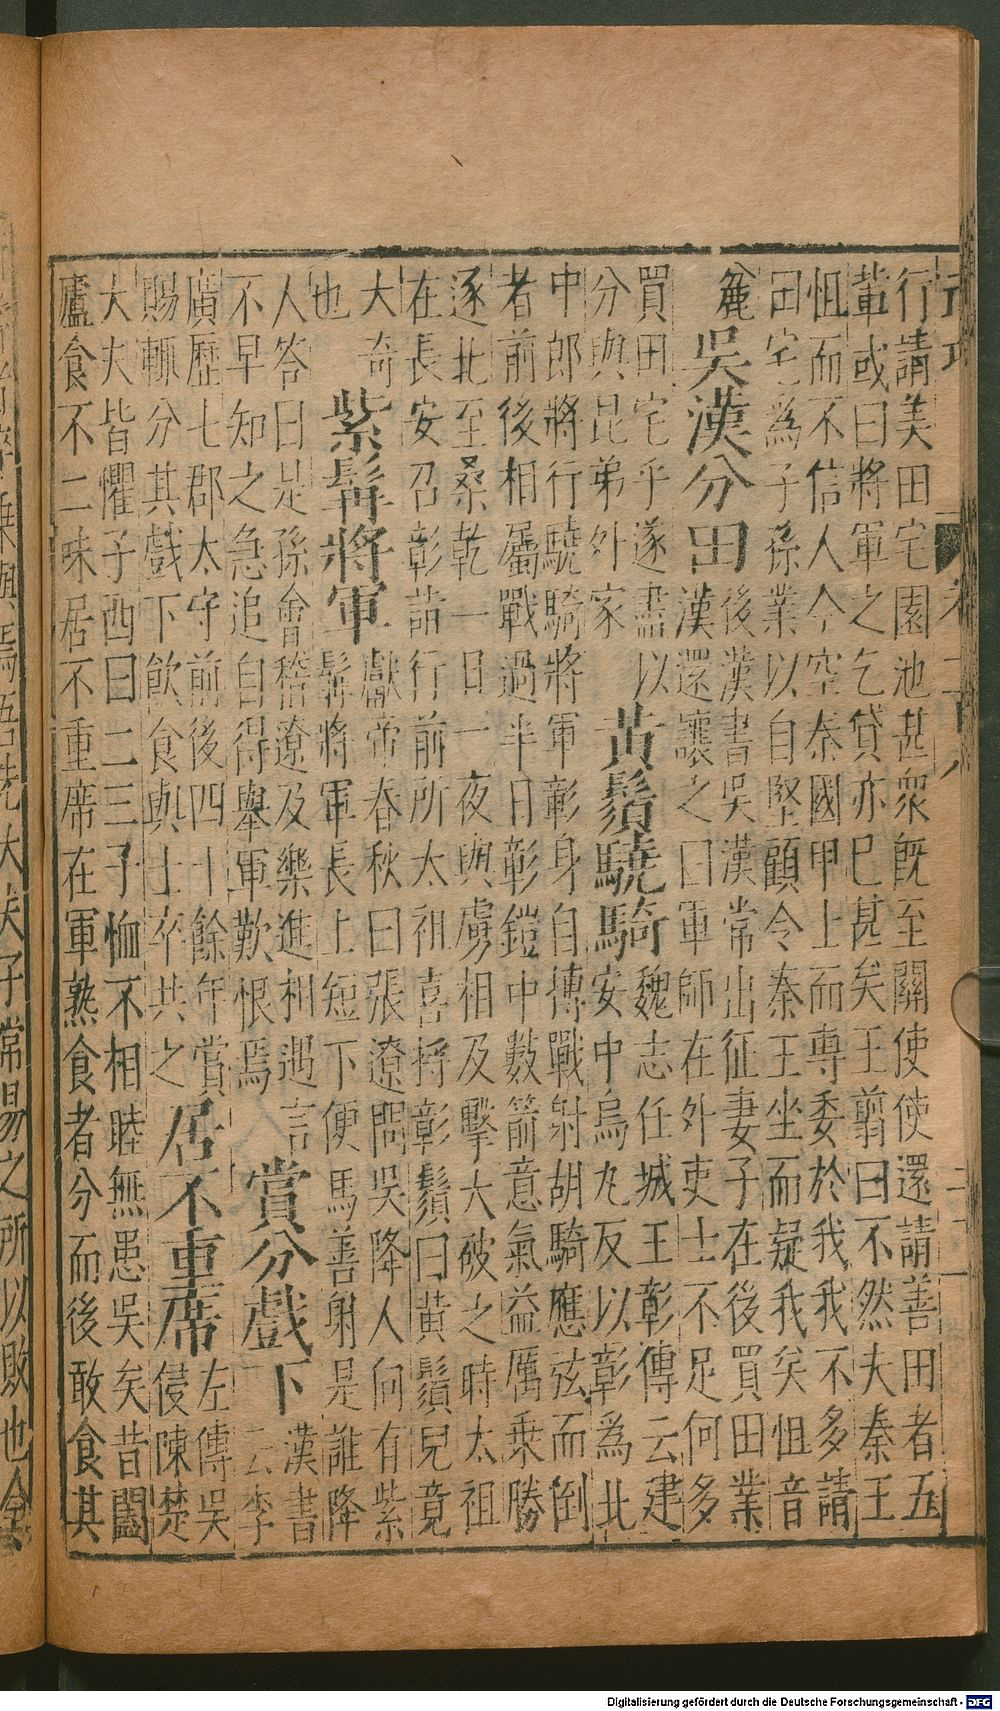 行請美田宅園池甚衆既至關使使還請善田者五
軰或曰將軍之乞貸亦巳甚矣王翦曰不然夫秦王
怚而不信人今空秦國甲士而專委於我我不多請
田宅爲子孫業以自堅顧令秦王坐而疑我矣怚音
麄
吳漢分田
後漢書吳漢常出征妻子在後買田業
漢還讓之曰軍師在外吏士不足何多
買田宅乎遂盡以
分與昆弟外家
黃鬚驍騎
魏志任城王彰傳云建
安中烏丸反以彰爲北
中郎將行驍騎將軍彰身自搏戰射胡騎應弦而倒
者前後相屬戰過半日彰鎧中數箭意氣益厲乘勝
逐北至桑乾一日一夜與虜相及擊大破之時太祖
在長安召彰詣行前所太祖喜捋彰鬚曰黃鬚兒竟
大奇
也
紫髯將軍
獻帝春秋曰張遼問吳降人向有紫
髯將軍長上短下便馬善射是誰降
人答曰是孫會稽遼及樂進相遇言
不早知之急追自得舉軍歎恨焉
賞分戲下
漢書
云李
廣歷七郡太守前後四十餘年賞
賜輒分其戲下飲食與士卒共之
居不重席
左傳吳
侵陳楚
大夫皆懼子西曰二三子恤不相睦無患吳矣昔闔
廬食不二味居不重席在軍熟食者分而後敢食其
常易之所以敗也
Digitalisierung gefördert durch die Deutsche Forschungsgemeinschaft - DFG